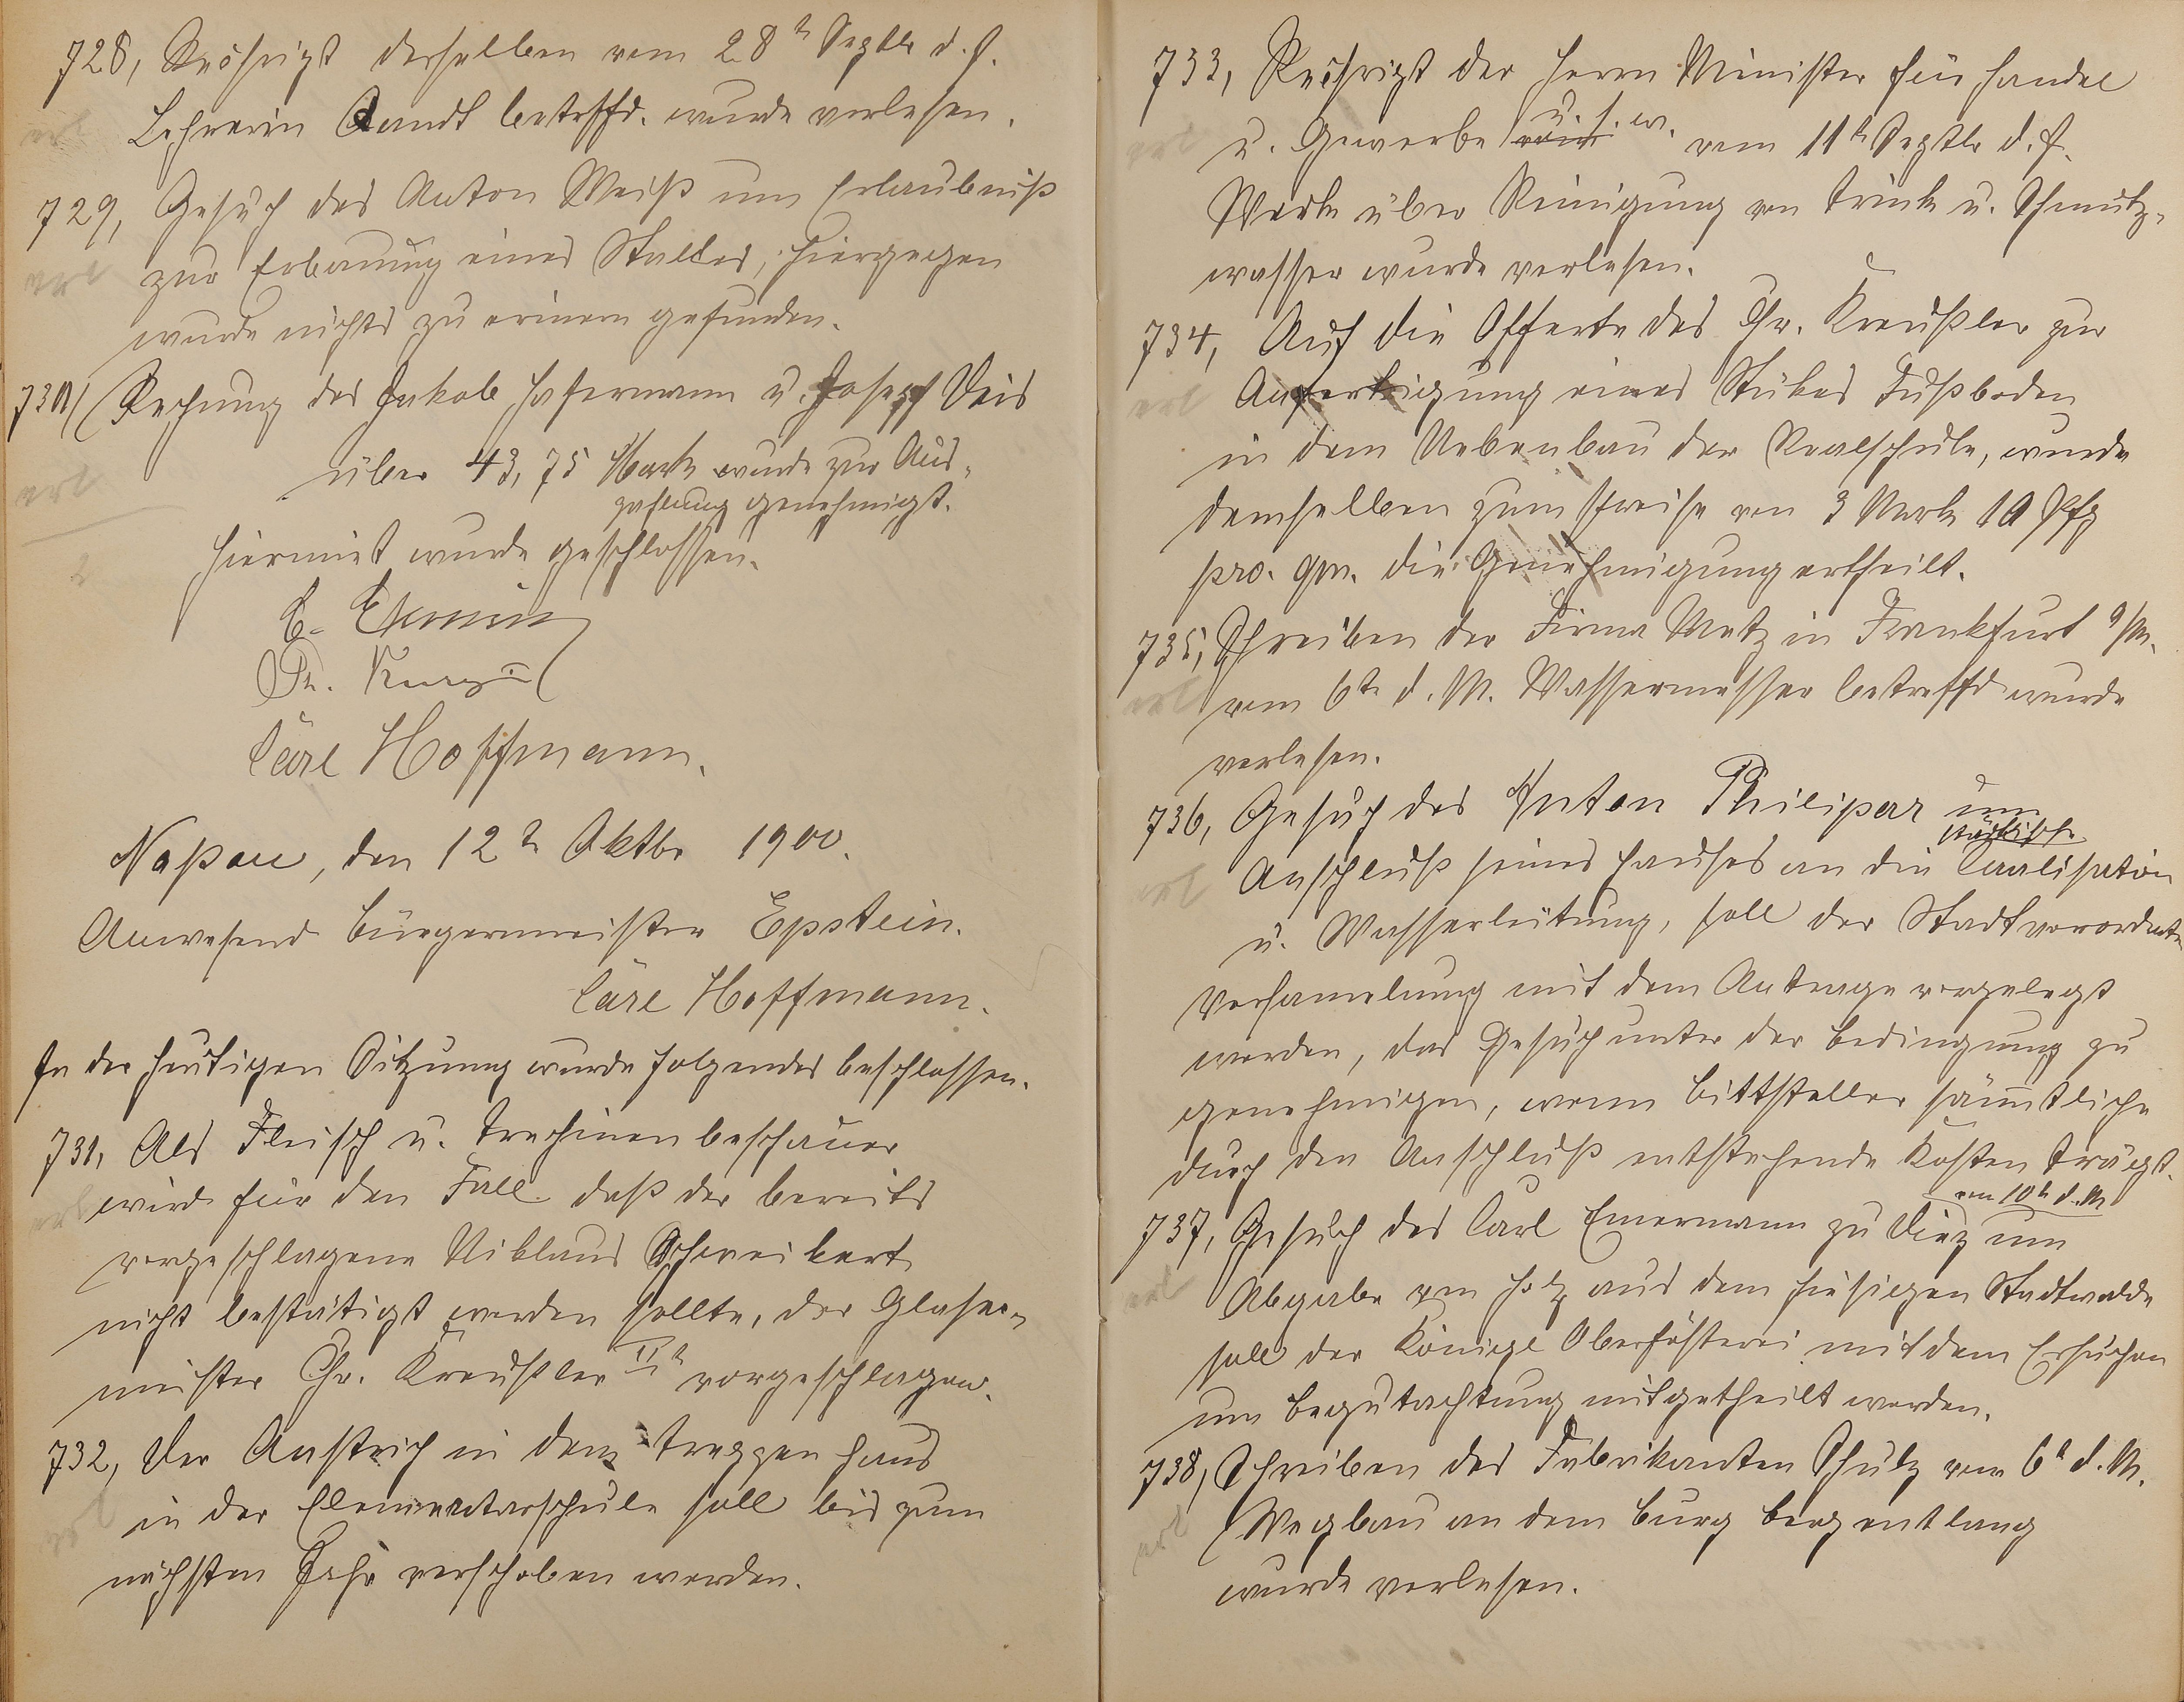 728, Rückschrift derselben vom 28t Septbr d. J.
Lehrerin Candt betreffd. wurde verlesen.
erl
729, Gesuch des Anton Weiß um Erlaubniß
zur Erbauung eines Stalles, hiergegen
erl
wurde nichts zu erinern gefunden.
730, Rechnung des Jakob Hasermann u. Joseph Veis
über 43,75 Mark wurde zur Aus-
zahlung genehmigt.
erl
Hiermit wurde geschlossen.
Carl Hoffmann.
Nassau, den 12t Oktbr 1900.
Anwesend Bürgermeister Epstein.
Carl Hoffmann.
In der heutigen Sitzung wurde folgendes beschlossen.
731, Als Fleisch u. Trechinenbeschauer
wird für den Fall daß der bereits
erl
vorgeschlagene Niklaus Schweikert
nicht bestätigt werden sollte, der Glaser-
meister Chr. Kreußler IIt vorgeschlagen.
732, Der Anstrich in dem Treppenhaus
in der Elementarschule soll bis zum
erl
nächsten Jahr verschoben werden.
733, Rückschrift der Herrn Minister für Handel
u. Gewerbe u. s. w. vom 11t Septbr d. J.
erl
Werke über Reinigung von Trink u. Schmutz-
wasser wurde verlesen.
734, Auf die Offerte des Chr. Kreußler zur
Anfertigung eines Stükes Fußboden
erl
in dem Nebenbau der Realschule, wurde
demselben zum Preise von 3 Mark 10 Pfg
pro. qm. die Genehmigung ertheilt.
735, Schreiben der Firma Metz in Frankfurt a/M.
vom 6te d. M. Wassermesser betreffd wurde
erl
verlesen.
736, Gesuch des Anton Philipar um
Anschluß seines Hauses an die städtische Canalisation
erl
u. Wasserleitung, soll der Stadtverordneten
Versamelung mit dem Antrage vorgelegt
werden, das Gesuch unter der Bedingung zu
genehmigen, wenn Bittsteller sämtliche
durch den Anschluß entstehende Kosten trägt.
vom 10t d. M.
737, Gesuch des Carl Emermann zu Diez um
Abgabe von Holz aus dem hiesigen Stadtwalde
erl
soll der Königl Oberfösterei mit dem Ersuchen
um Begutachtung mitgetheilt werden.
738, Schreiben des Fabrikanten Schulz vom 6t d. M.
Wegbau an dem Burg berg entlang
erl
wurde verlesen.